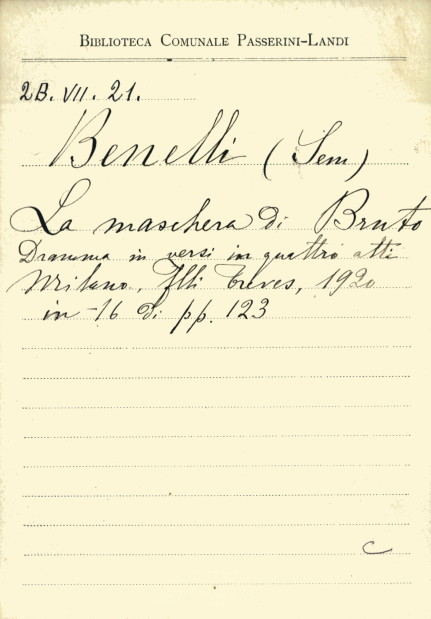 BIBLIOTECA COMUNALE PASSERINI-LANDI
2B. VII. 21.
Benelli (Sem)
La maschera di Bruto
Dramma in versi in quattro atti
Milano, Flli Treves, 1920
in-16 di pp. 123
C